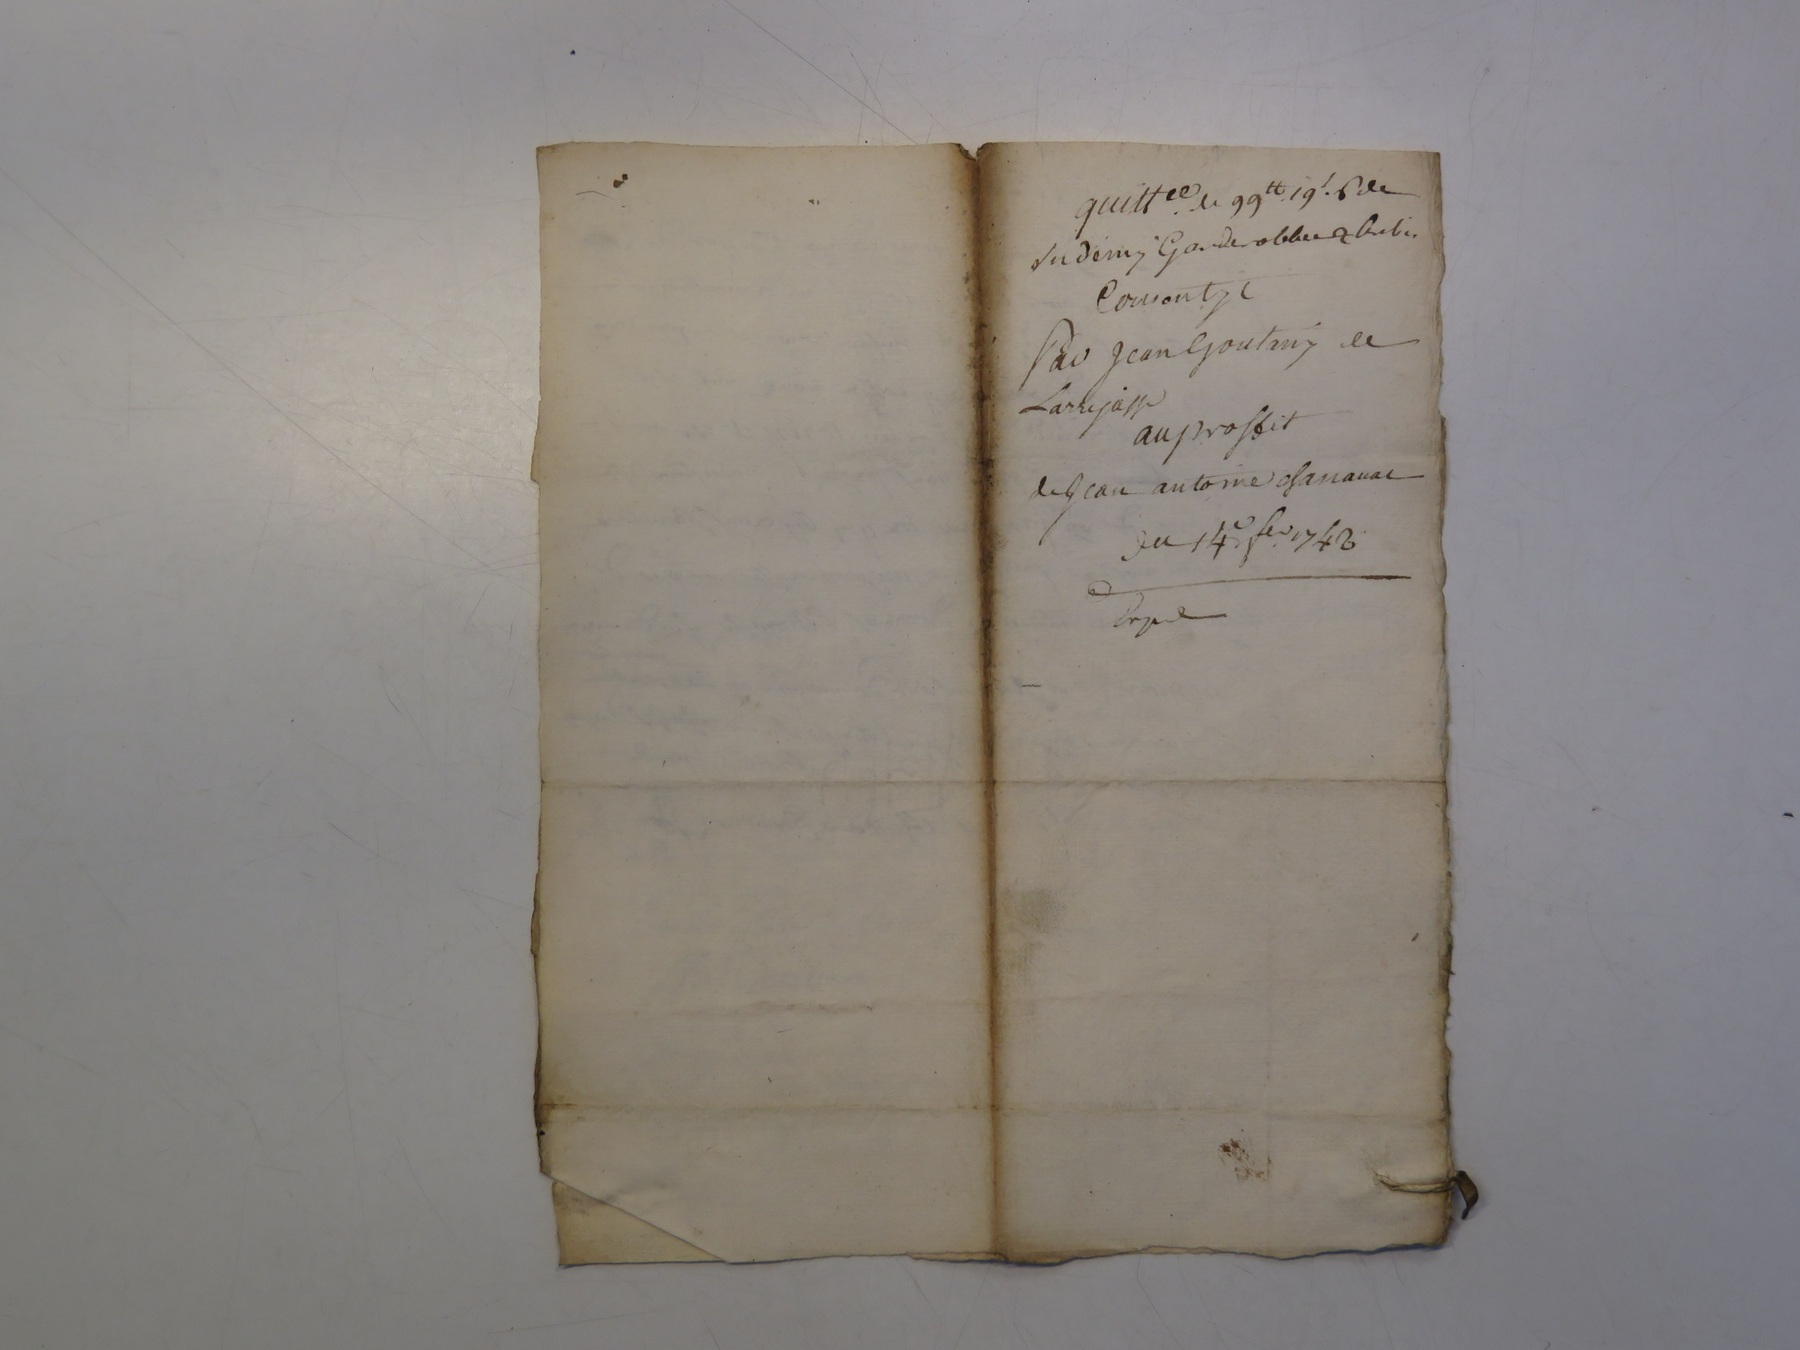 quittce. de 99tt 19s. 6 de
un demy Garderobbe &
Consenty
Par Jean Goutany de
Larrejasse
au proffit
de Jean antoine
du 14e fer 1748